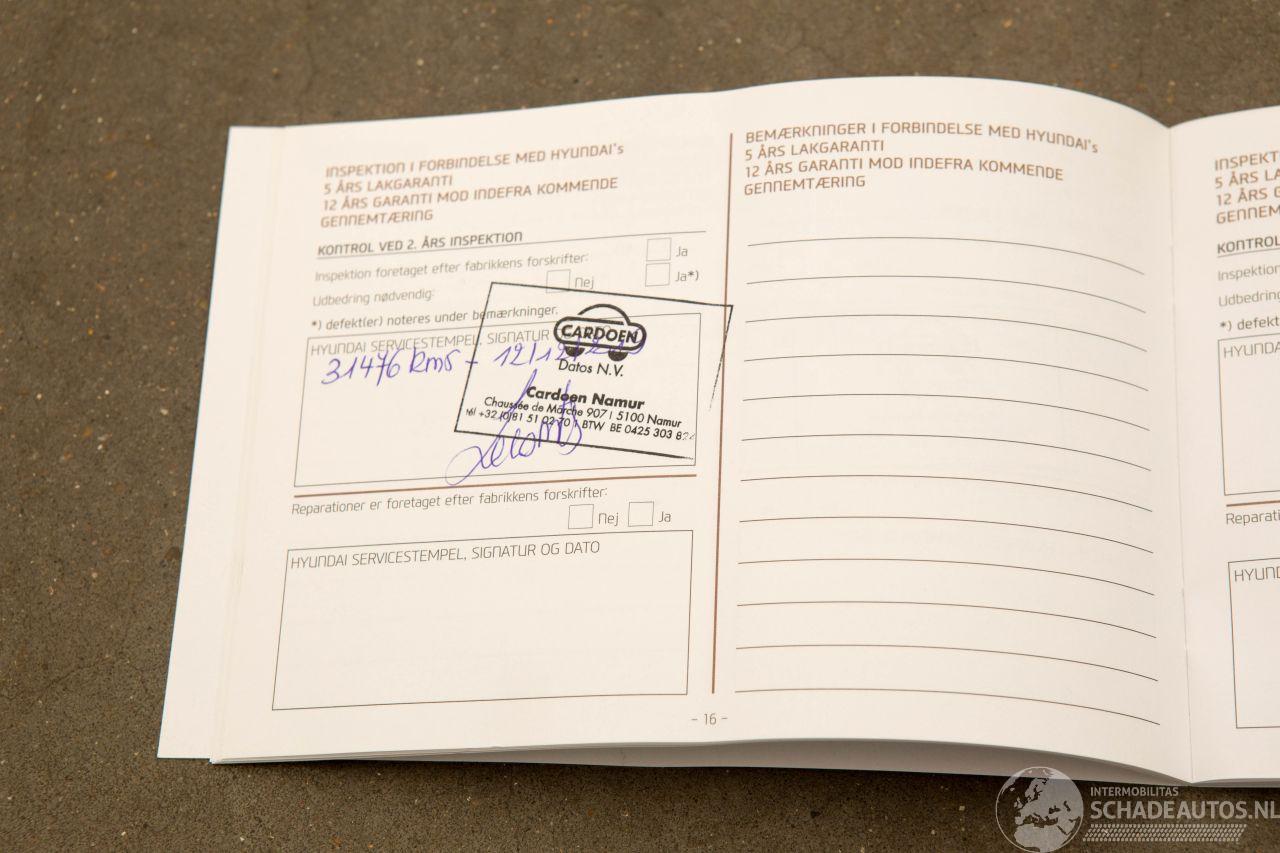 INSPEKTION I FORBINDELSE MED HYUNDAI's
5 ÅRS LAKGARANTI
12 ÅRS GARANTI MOD INDEFRA KOMMENDE
GENNEMTÆRING
KONTROL VED 2. ÅRS INSPEKTION
Inspektion foretaget efter fabrikkens forskrifter: Ja
Udbedring nødvendig: Nej Ja*)
*) defekt(er) noteres under bemærkninger.
HYUNDAI SERVICESTEMPEL, SIGNATUR
31476 kms - 12/12/
CARDOEN
Datos N.V.
Cardoen Namur
Chaussée de Marche 907 | 5100 Namur
tél +32 (0)81 51 02 70 | BTW BE 0425 303 824
Reparationer er foretaget efter fabrikkens forskrifter:
Nej Ja
HYUNDAI SERVICESTEMPEL, SIGNATUR OG DATO
BEMÆRKNINGER I FORBINDELSE MED HYUNDAI's
5 ÅRS LAKGARANTI
12 ÅRS GARANTI MOD INDEFRA KOMMENDE
GENNEMTÆRING
- 16 -
INSPEKT
5 ÅRS LA
12 ÅRS G
GENNEM
KONTROL
Inspektion
Udbedring
*) defekt
HYUNDA
Reparati
HYUND
INTERMOBILITAS
SCHADEAUTOS.NL